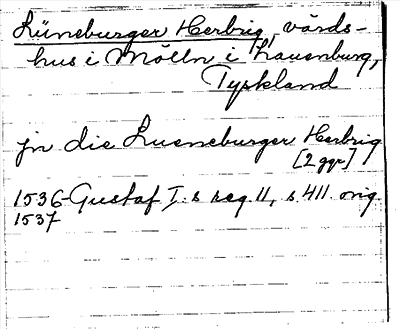 Lüneburger Herbrig, värds-
hus i Mölln i Lauenburg,
Tyskland
jn die Lueneburger Herbrig
[2 ggr]
1536- Gustaf I:s reg. 11, s. 411 orig.
1537